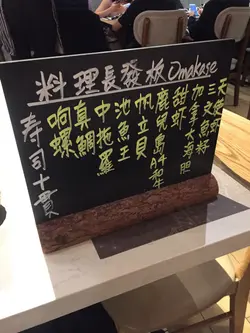 料理長發板Omakase
壽司十貫
响螺
真鯛
中拖羅
池魚王
帆立貝
鹿兒島A4和牛
甜虾
加拿大海胆
三文魚籽
天使虾